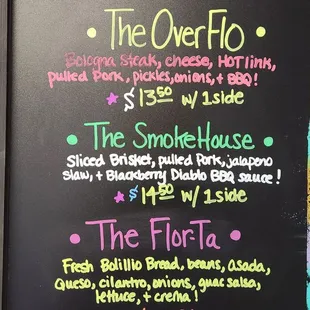 • The OverFlo •
Bologna Steak, cheese, HOT link,
pulled Pork, pickles, onions, + BBQ!
★ $13.50 w/ 1 side
• The SmokeHouse •
Sliced Brisket, pulled Pork, jalapeno
slaw, + Blackberry Diablo BBQ sauce!
★ $14.50 w/ 1 side
• The Flor-Ta •
Fresh Bolillio Bread, beans, asada,
Queso, cilantro, onions, guac salsa,
lettuce, + crema!